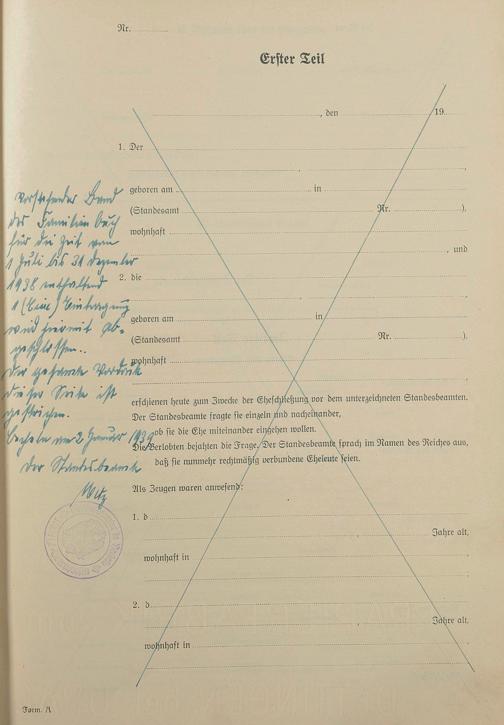 Nr.
Erster Teil
, den 19
1. Der
,
geboren am in
(Standesamt Nr. ).
wohnhaft
, und
2. die
,
geboren am in
(Standesamt Nr. ).
wohnhaft
erschienen heute zum Zwecke der Eheschließung vor dem unterzeichneten Standesbeamten.
Der Standesbeamte fragte sie einzeln und nacheinander,
ob sie die Ehe miteinander eingehen wollen.
Die Verlobten bejahten die Frage. Der Standesbeamte sprach im Namen des Reiches aus,
daß sie nunmehr rechtmäßig verbundene Eheleute seien.
Als Zeugen waren anwesend:
1. d
Jahre alt,
wohnhaft in
2. d
Jahre alt,
wohnhaft in
Form. A
Vorstehender Band
des Familienbuch
für die Zeit vom
1 Juli bis 31 Dezember
1938 enthaltend
1 (Eine) Eintragung
wird hiermit ab-
geschlossen.
Der gesamte Vordruck
dieser Seite ist
gestrichen.
am 2 Januar 1939
Der Standesbeamte